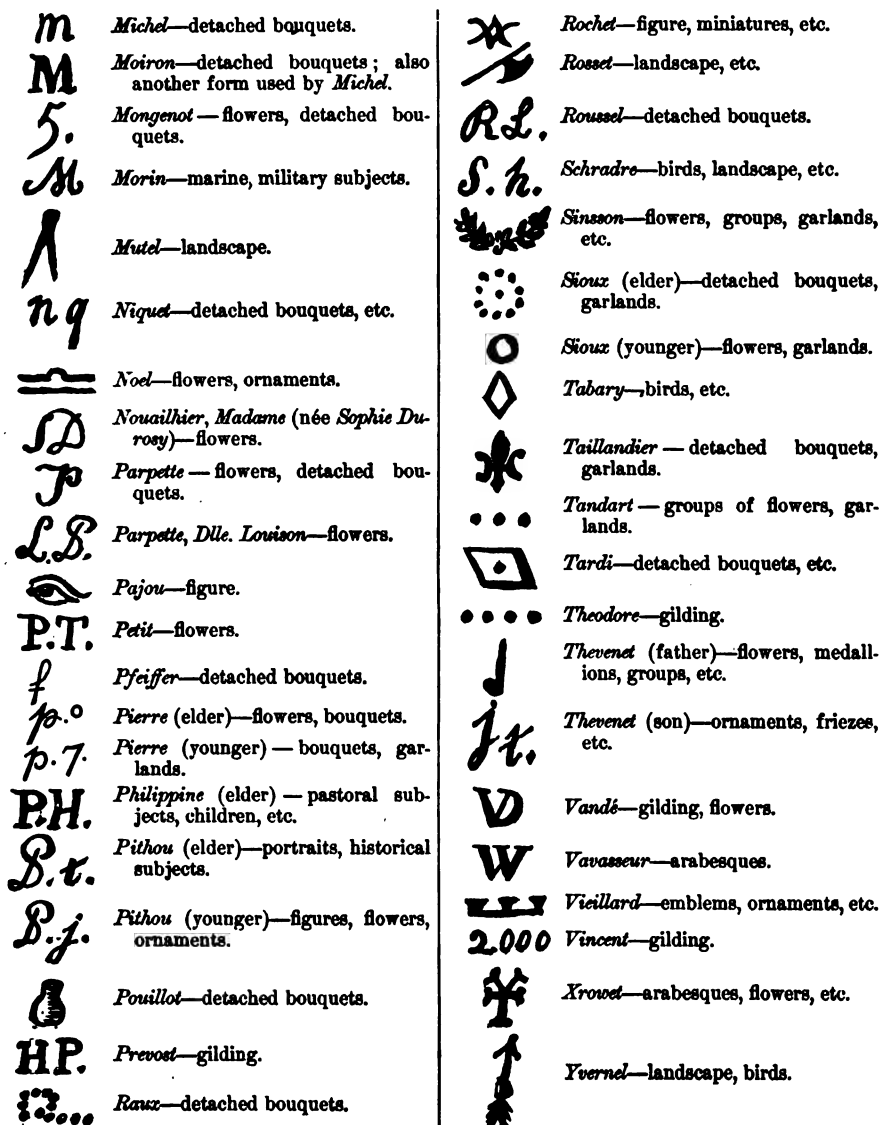 m Michel—detached bouquets.
M Moiron—detached bouquets; also
another form used by Michel.
5. Mongenot—flowers, detached bou-
quets.
M Morin—marine, military subjects.
Mutel—landscape.
n q Niquet—detached bouquets, etc.
Noel—flowers, ornaments.
SD Nouailhier, Madame (née Sophie Du-
rosy)—flowers.
P Parpette—flowers, detached bou-
quets.
L.P. Parpette, Dlle. Louison—flowers.
Pajou—figure.
P.T. Petit—flowers.
f Pfeiffer—detached bouquets.
p.o Pierre (elder)—flowers, bouquets.
p.7. Pierre (younger)—bouquets, gar-
lands.
P.H. Philippine (elder)—pastoral sub-
jects, children, etc.
P.t. Pithou (elder)—portraits, historical
subjects.
P.j. Pithou (younger)—figures, flowers,
ornaments.
Pouillot—detached bouquets.
HP. Prevost—gilding.
Raux—detached bouquets.
Rochet—figure, miniatures, etc.
Rosset—landscape, etc.
R.L. Roussel—detached bouquets.
S.h. Schradre—birds, landscape, etc.
Sinsson—flowers, groups, garlands,
etc.
Sioux (elder)—detached bouquets,
garlands.
Sioux (younger)—flowers, garlands.
Tabary—birds, etc.
Taillandier—detached bouquets,
garlands.
Tandart—groups of flowers, gar-
lands.
Tardi—detached bouquets, etc.
Theodore—gilding.
Thevenet (father)—flowers, medall-
ions, groups, etc.
jt. Thevenet (son)—ornaments, friezes,
etc.
VD Vandé—gilding, flowers.
W Vavasseur—arabesques.
Vieillard—emblems, ornaments, etc.
2000 Vincent—gilding.
Xrowet—arabesques, flowers, etc.
Yvernel—landscape, birds.